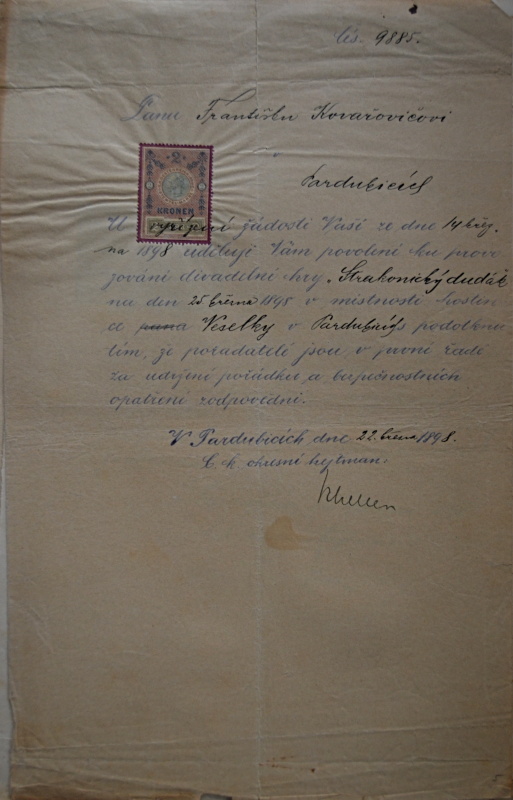 čís. 9885.
Panu Františku Kovařovičovi
Pardubicích
2
KRONEN
U vyřízení žádosti Vaší ze dne 14 břez.
na 1898 uděluji Vám povolení ku provo
zování divadelní hry „Strakonický dudák
na den 25 března 1898 v místnosti hostin
ce pana Veselky v Pardubicích s podotknu
tím, že pořadatelé jsou v první řadě
za udržení pořádku a bezpečnostních
opatření zodpovědni.
V Pardubicích dne 22. března 1898.
C. k. okresní hejtman: